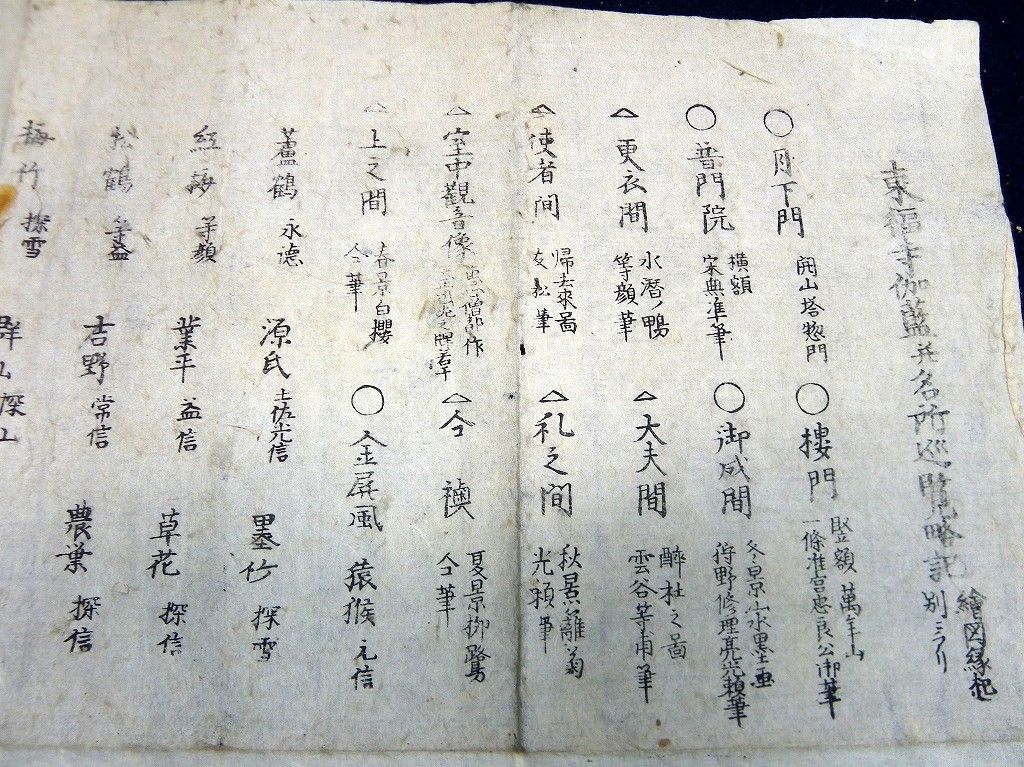 東福寺伽藍并名所巡覧略記
繪図縁起
別ニアリ
○月下門
開山塔惣門
○樓門
竪額 萬年山
一條准宮忠良公御筆
○普門院
横額
宋無準筆
○御成間
冬景山水墨画
狩野修理亮光頼筆
△更衣間
水潜ノ鴨
等顔筆
△大夫間
醉杜之圖
雲谷等甫筆
△使者間
帰去来圖
友松筆
△礼之間
秋景籬菊
光頼筆
△室中觀音像
作
△仝 襖
夏景柳鷺
仝筆
△上之間
春景白櫻
仝筆
○金屏風 猿猴 元信
蘆鶴 永徳
源氏 土佐光信
墨竹 探雪
紅梅 等顔
業平 益信
草花 探信
松鶴 等益
吉野 常信
農業 探信
梅竹 探雪
群山 探山